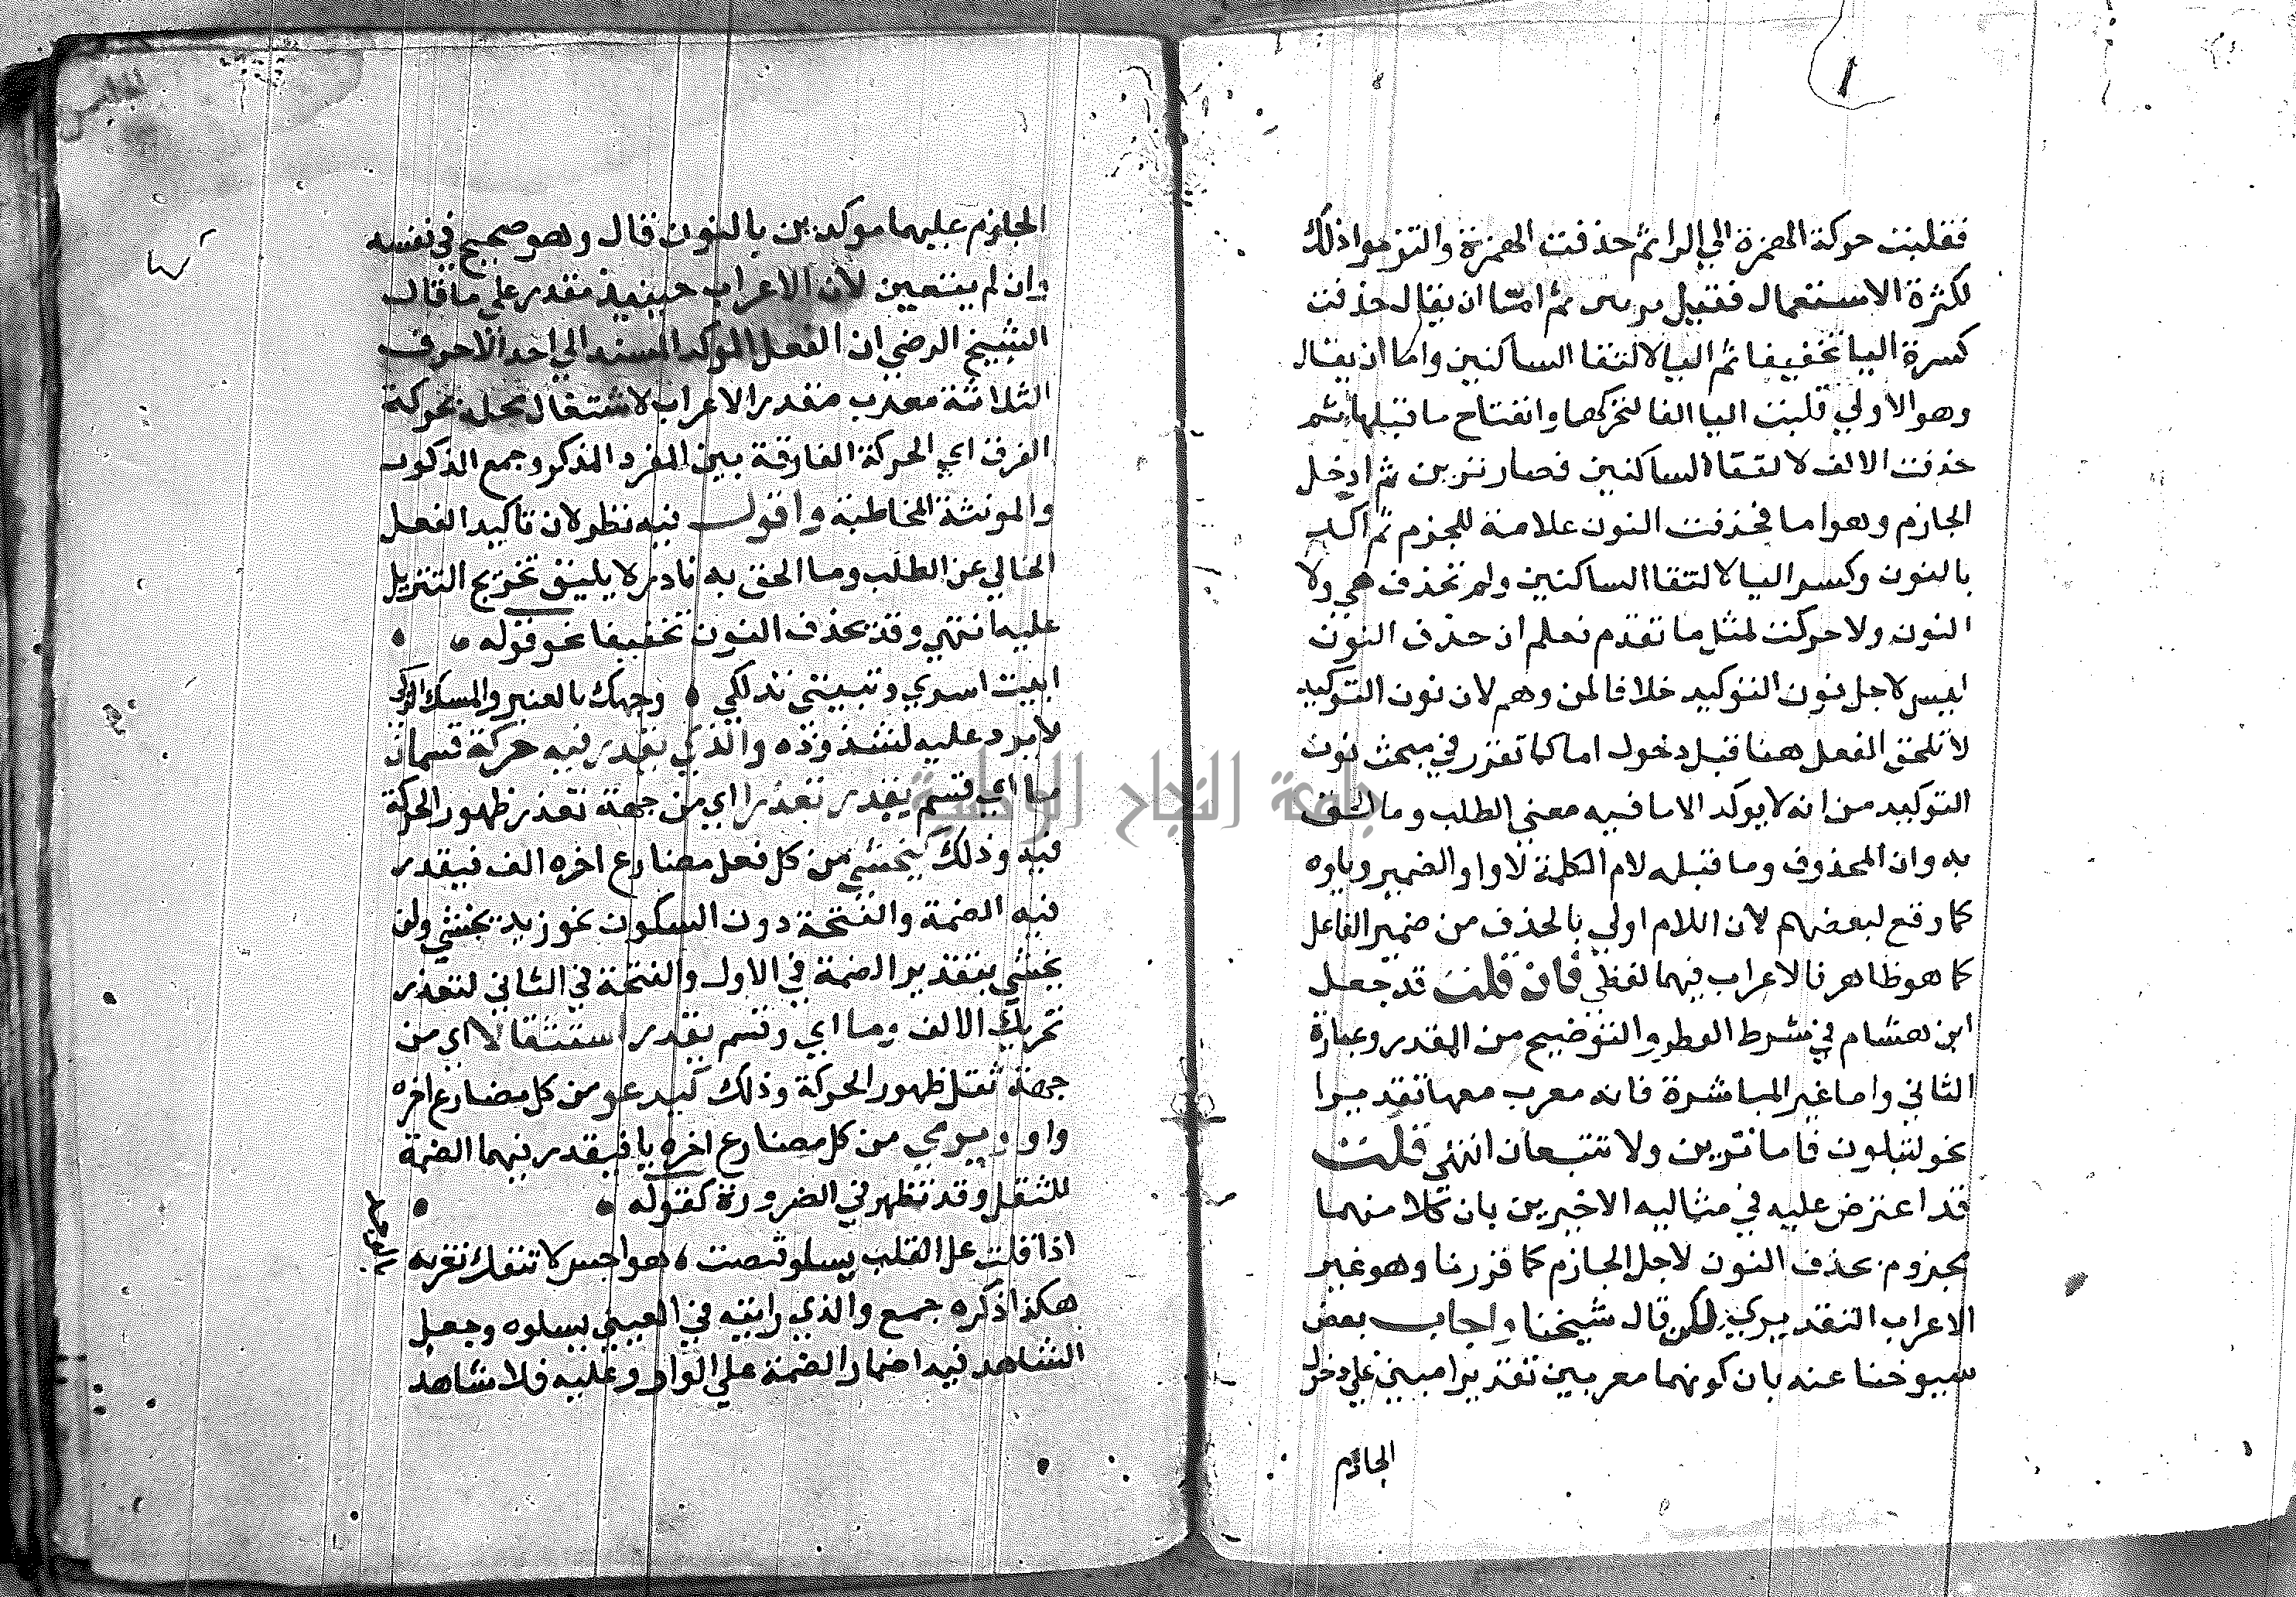 فقلبت حركة الهمزة الي الرا ثم حذفت الهمزة والتزموا ذلك
لكثرة الاستعمال فقيل ثم اما ان يقال حذفت
كسرة اليا تخفيفا ثم اليا لالتقا الساكنين واما ان يقال
وهو الاولي قلبت اليا الفا لتحركها وانفتاح ما قبلها ثم
حذفت الالف لالتقا الساكنين فصار ترين ثم ادخل
الجازم وهو اما فحذفت النون علامة للجزم ثم اكد
بالنون وكسر اليا لالتقا الساكنين ولم تحذف هي ولا
النون ولا حركت لمثل ما تقدم فعلم ان حذف النون
ليس لاجل نون التوكيد خلافا لمن وهم لان نون التوكيد
لا تلحق الفعل هنا قبل دخول اما كما تقرر في مبحث نون
التوكيد من انه لا يوكد الا ما فيه معني الطلب وما الحق
به وان المحذوف وما قبله لام الكلمة لا واو الضمير وياوه
كما وقع لبعضهم لان اللام اولي بالحذف من ضمير الفاعل
كما هو ظاهر فالاعراب فيهما لفظي فان قلت قد جعل
ابن هشام في شرط القطر والتوضيح من المقدر وعبارة
الثاني واما غير المباشرة فانه معرب معها تقديرا
نحو لتبلون فاما ترين ولا تتبعان انتهي قلت
قد اعترض عليه في مثاليه الاخيرين بان كلا منهما
مجزوم بحذف النون لاجل الجازم كما قررنا وهو غير
الاعراب التقديري لكن قال شيخنا واجاب بعض
شيوخنا عنه بان كونهما معربين تقديرا مبني علي دخول
الجازم
الجازم عليهما موكدين بالنون قال وهو صحيح في نفسه
وان لم يتعين لان الاعراب حينيذ مقدر علي ما قال
الشيخ الرضي ان الفعل الموكد المسند الي احد الاحرف
الثلاثة معرب مقدر الاعراب لاشتغال محله بحركة
الفرق اي الحركة الفارقة بين المفرد المذكر وجمع الذكور
والمونثة المخاطبة واقول فيه نظر لان تاكيد الفعل
الخالي عن الطلب وما الحق به نادر لا يليق تخريج التنزيل
عليه انتهي وقد تحذف النون تخفيفا نحو قوله
ابيت اسري وتبيتي تدلكي وجهك بالعنبر والمسك الذكي
لا يرد عليه لشذوذه والذي يقدر فيه حركة قسمان
ما اي قسم يقدر تعذرا اي من جهة تعذر ظهور الحركة
فيه وذلك كيخشي من كل فعل مضارع اخره الف فيقدر
فيه الضمة والفتحة دون السكون نحو زيد يخشي ولن
يخشي بتقدير الضمة في الاول والفتحة في الثاني لتعذر
تحريك الالف وما اي وقسم يقدر استثقالا اي من
جهة ثقل ظهور الحركة وذلك كيدعو من كل مضارع اخره
واو ويرمي من كل مضارع اخره يا فيقدر فيهما الضمة
للثقل وقد تظهر في الضرورة كقوله
اذا قلت عل القلب يسلو قيضت هواجس لا تنفك تغريه
بالوجد
هكذا ذكره جمع والذي رايته في العيني يسلوه وجعل
الشاهد فيه اضمار الضمة علي الواو وعليه فلا شاهد
جامعة النجاح الوطنية